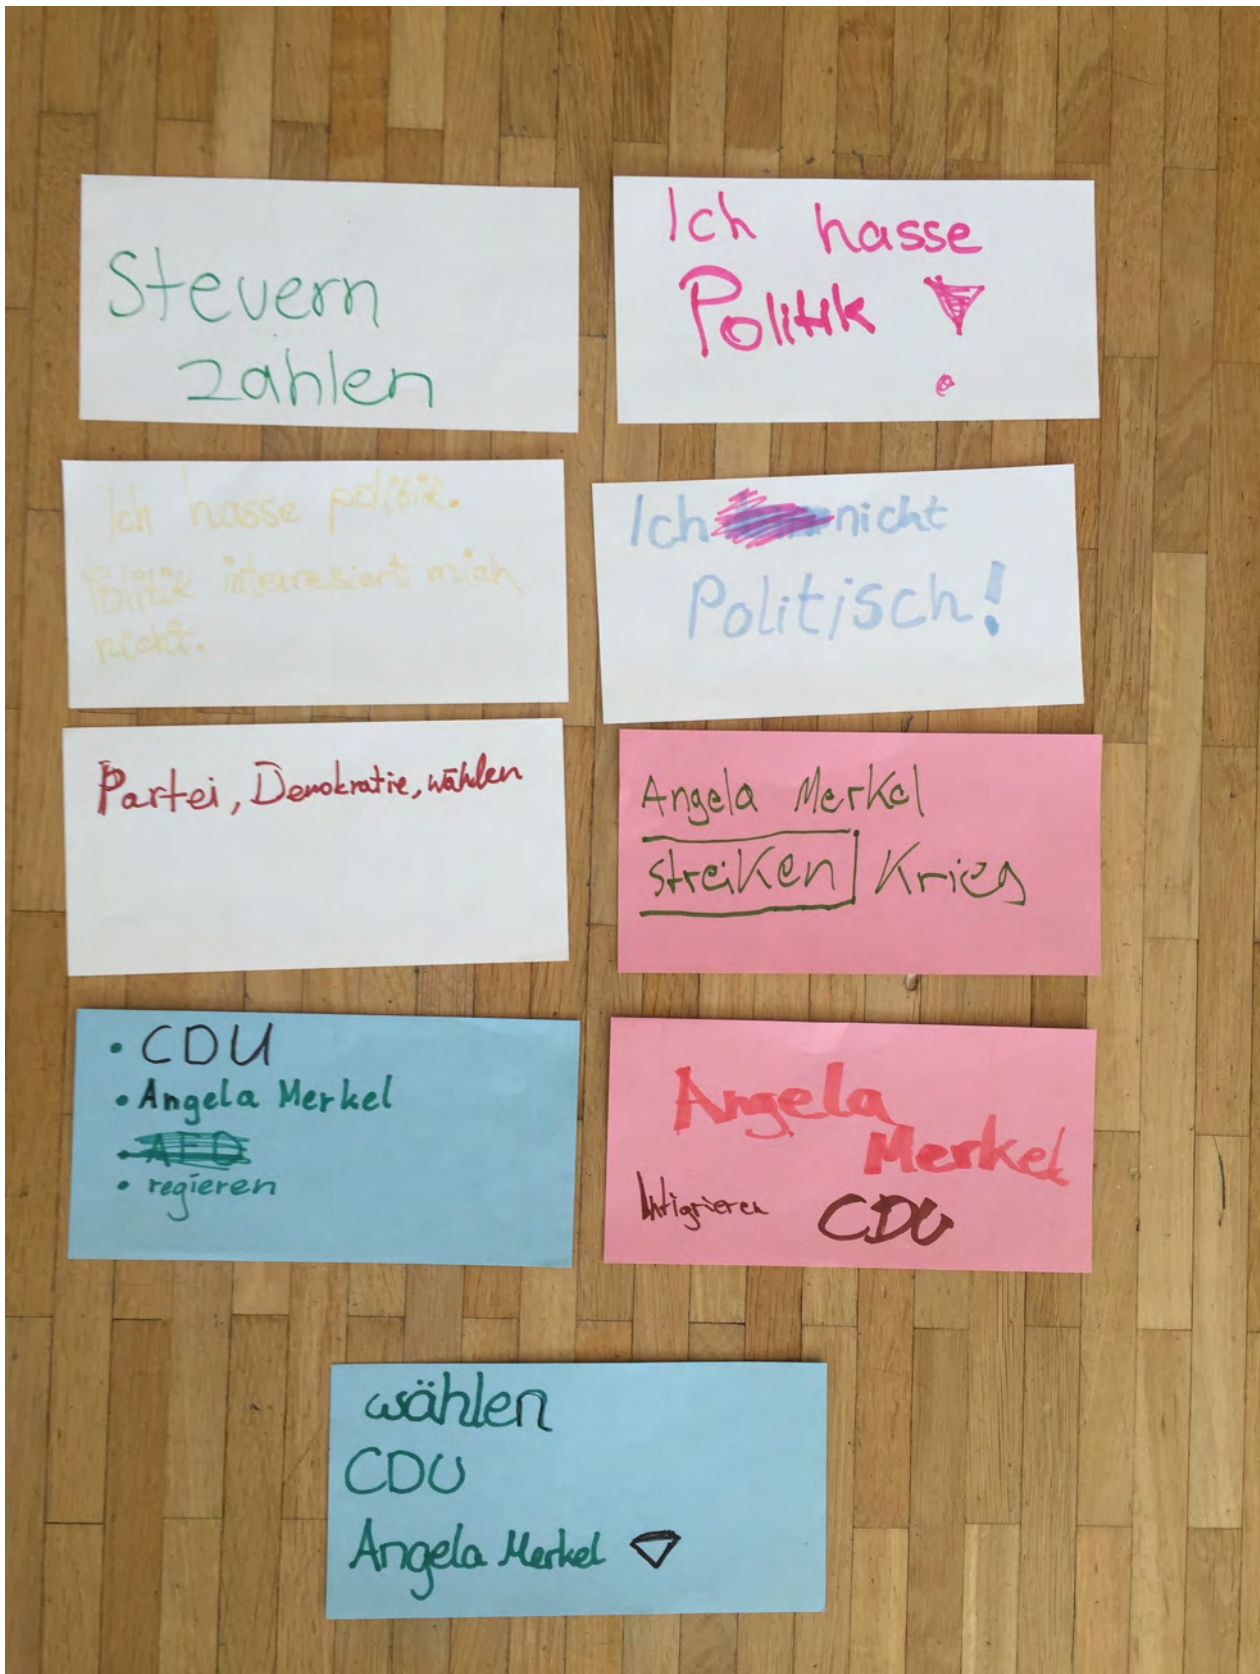 Steuern
zahlen
Ich hasse
Politik !
Ich hasse politik.
Politik interresiert mich
nicht.
Ich nicht
Politisch!
Partei, Demokratie, wählen
Angela Merkel
streiken Krieg
• CDU
• Angela Merkel
• AFD
• regieren
Angela
Merkel
Intigrieren CDU
wählen
CDU
Angela Merkel